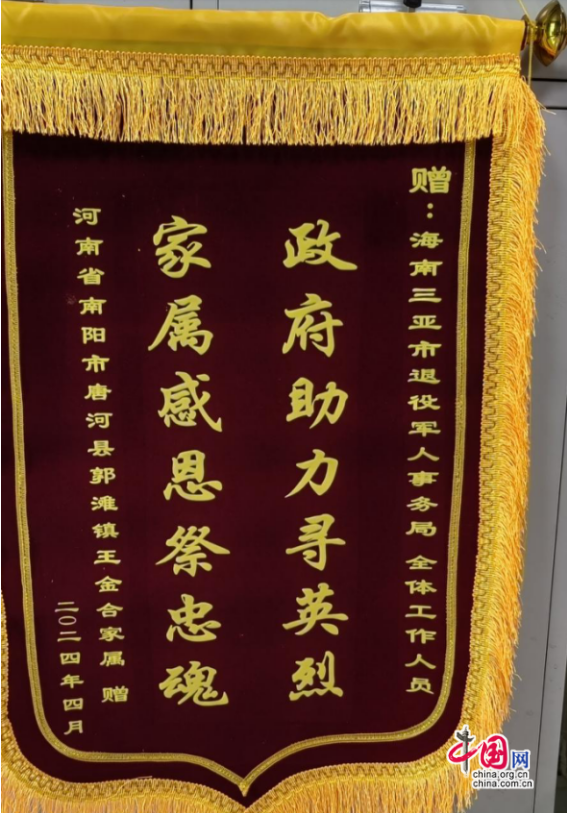 赠：海南三亚市退役军人事务局 全体工作人员
政府助力寻英烈
家属感恩祭忠魂
河南省南阳市唐河县郭滩镇王金合家属 赠
二〇二四年四月
中国网
china.org.cn
china.com.cn